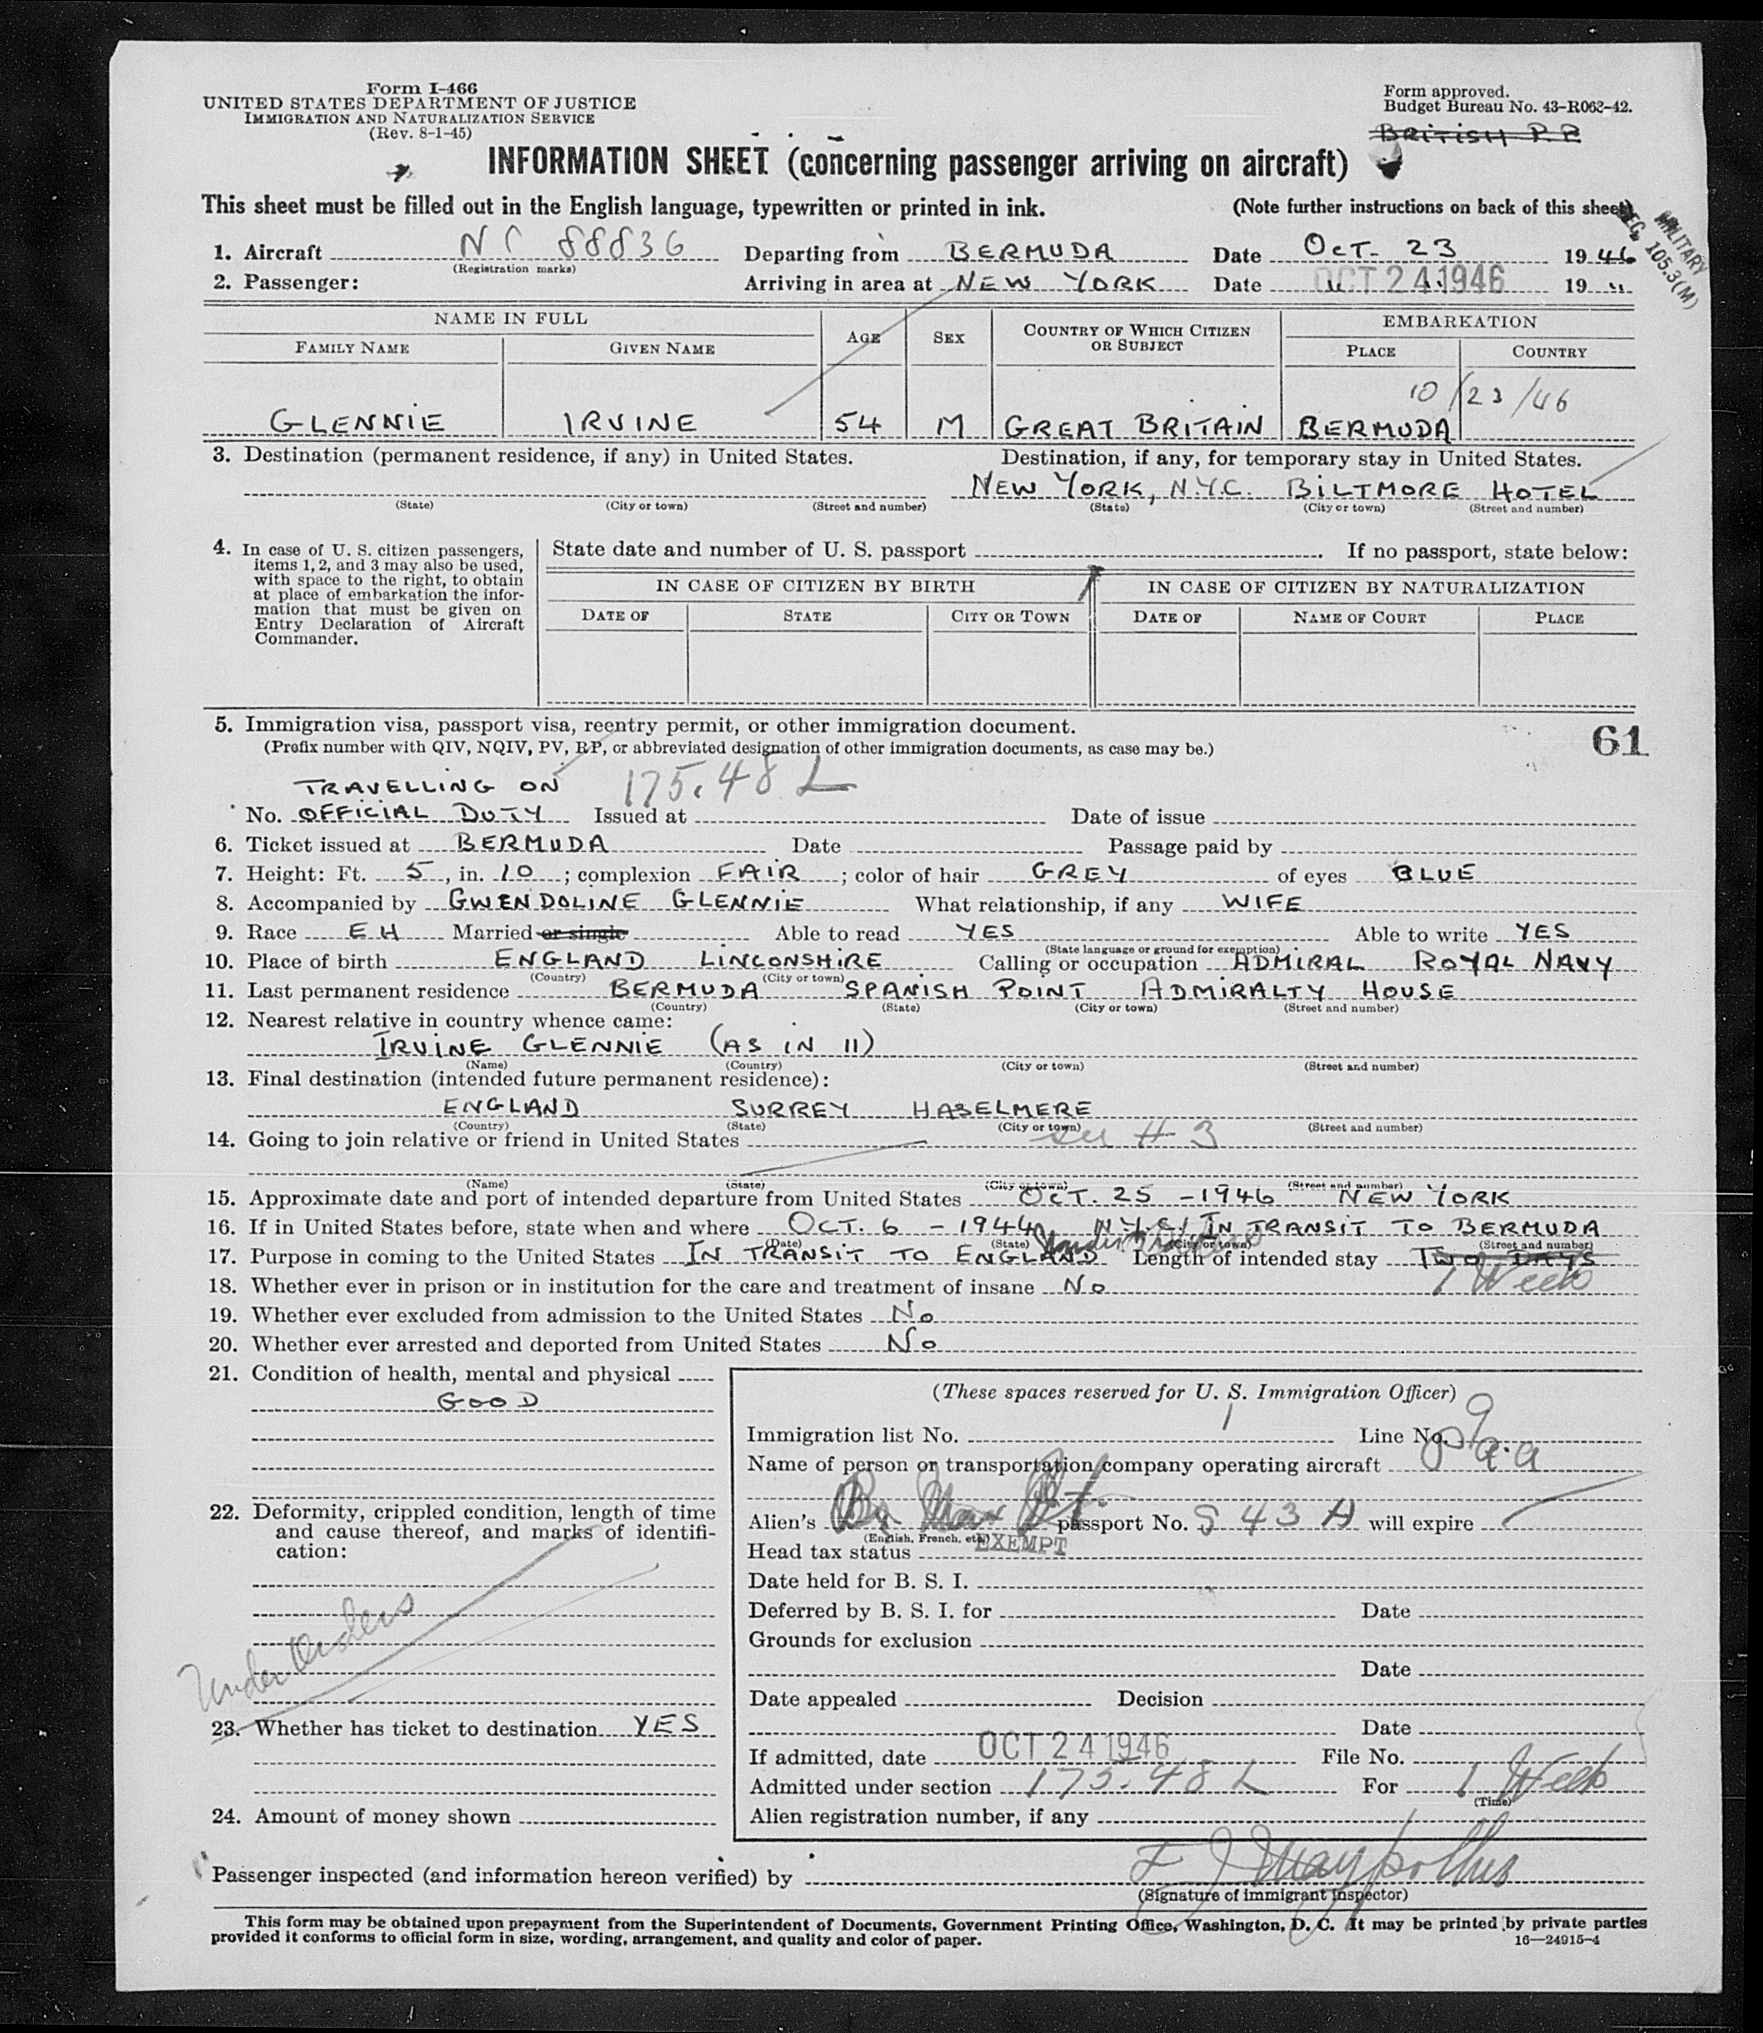 Form I-466
UNITED STATES DEPARTMENT OF JUSTICE
IMMIGRATION AND NATURALIZATION SERVICE
(Rev. 8-1-45)
Form approved.
Budget Bureau No. 43-R063-42.
BRITISH P.P.
INFORMATION SHEET (concerning passenger arriving on aircraft)
This sheet must be filled out in the English language, typewritten or printed in ink. (Note further instructions on back of this sheet)
MILITARY
SEC. 105.3(M)
1. Aircraft NC 88836 Departing from BERMUDA Date OCT. 23 1946
(Registration marks)
2. Passenger: Arriving in area at NEW YORK Date OCT 24 1946 19 "
NAME IN FULL AGE SEX COUNTRY OF WHICH CITIZEN OR SUBJECT EMBARKATION
FAMILY NAME GIVEN NAME PLACE COUNTRY
10/23/46
GLENNIE IRVINE 54 M GREAT BRITAIN BERMUDA
3. Destination (permanent residence, if any) in United States. Destination, if any, for temporary stay in United States.
NEW YORK, N.Y.C. BILTMORE HOTEL
(State) (City or town) (Street and number) (State) (City or town) (Street and number)
4. In case of U. S. citizen passengers, items 1, 2, and 3 may also be used, with space to the right, to obtain at place of embarkation the information that must be given on Entry Declaration of Aircraft Commander.
State date and number of U. S. passport If no passport, state below:
IN CASE OF CITIZEN BY BIRTH IN CASE OF CITIZEN BY NATURALIZATION
DATE OF STATE CITY OR TOWN DATE OF NAME OF COURT PLACE
5. Immigration visa, passport visa, reentry permit, or other immigration document. 61
(Prefix number with QIV, NQIV, PV, RP, or abbreviated designation of other immigration documents, as case may be.)
TRAVELLING ON 175.48 L
No. OFFICIAL DUTY Issued at Date of issue
6. Ticket issued at BERMUDA Date Passage paid by
7. Height: Ft. 5, in. 10; complexion FAIR; color of hair GREY of eyes BLUE
8. Accompanied by GWENDOLINE GLENNIE What relationship, if any WIFE
9. Race EH Married or single Able to read YES Able to write YES
(State language or ground for exemption)
10. Place of birth ENGLAND LINCONSHIRE Calling or occupation ADMIRAL ROYAL NAVY
(Country) (City or town)
11. Last permanent residence BERMUDA SPANISH POINT ADMIRALTY HOUSE
(Country) (State) (City or town) (Street and number)
12. Nearest relative in country whence came:
IRVINE GLENNIE (AS IN 11)
(Name) (Country) (City or town) (Street and number)
13. Final destination (intended future permanent residence):
ENGLAND SURREY HASELMERE
(Country) (State) (City or town) (Street and number)
14. Going to join relative or friend in United States see # 3
(Name) (State) (City or town) (Street and number)
15. Approximate date and port of intended departure from United States OCT. 25 - 1946 NEW YORK
16. If in United States before, state when and where OCT. 6 - 1944 N.Y.C. IN TRANSIT TO BERMUDA
(Date) (State) (City or town) (Street and number)
17. Purpose in coming to the United States IN TRANSIT TO ENGLAND Under Orders Length of intended stay TWO DAYS
1 Week
18. Whether ever in prison or in institution for the care and treatment of insane No
19. Whether ever excluded from admission to the United States No
20. Whether ever arrested and deported from United States No
21. Condition of health, mental and physical
GOOD
22. Deformity, crippled condition, length of time and cause thereof, and marks of identification:
Under Orders
23. Whether has ticket to destination YES
24. Amount of money shown
(These spaces reserved for U. S. Immigration Officer)
Immigration list No. 1 Line No. 9
Name of person or transportation company operating aircraft P.a.a
Alien's passport No. S 43 A will expire
(English, French, etc.)
Head tax status EXEMPT
Date held for B. S. I.
Deferred by B. S. I. for Date
Grounds for exclusion
Date
Date appealed Decision
Date
If admitted, date OCT 24 1946 File No.
Admitted under section 175.48 L For 1 Week
(Time)
Alien registration number, if any
Passenger inspected (and information hereon verified) by
(Signature of immigrant inspector)
This form may be obtained upon prepayment from the Superintendent of Documents, Government Printing Office, Washington, D. C. It may be printed by private parties
provided it conforms to official form in size, wording, arrangement, and quality and color of paper. 16—24915-4